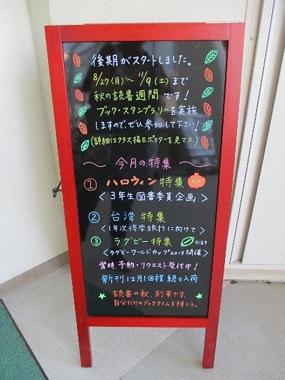 後期がスタートしました。
8/27(月)〜11/9(土)まで
秋の読書週間です!
ブック・スタンプラリーを実施
しますので、ぜひ参加して下さい!
(詳細はクラス掲示ポスターを見てネ)
〜今月の特集〜
① ハロウィン特集
<3年生図書委員企画>
② 台湾特集
<1年次修学旅行に向けて>
③ ラグビー特集
<ラグビーワールドカップ2019開催>
常時予約・リクエスト受付中!
新刊は月1回程続々入荷
読書の秋、到来です。
自分だけのブックタイムを持とう。